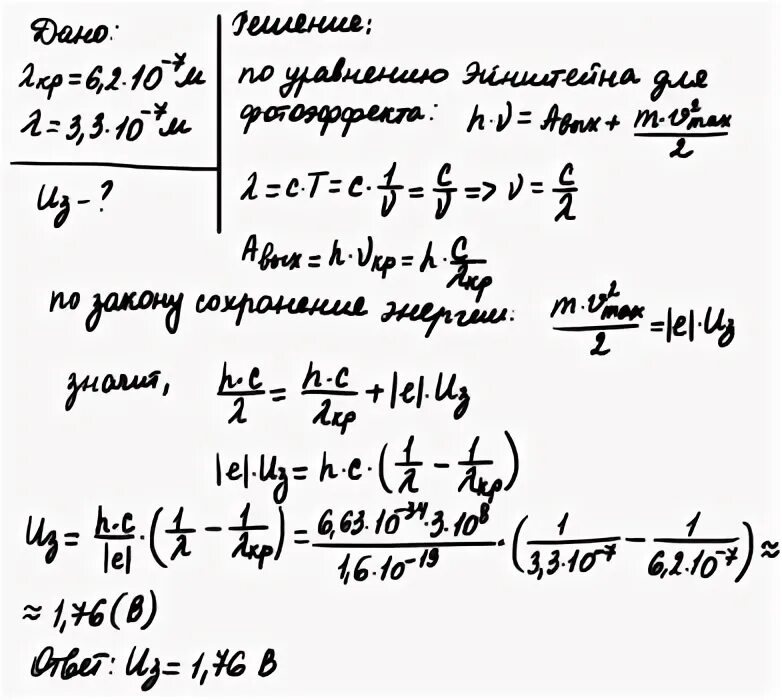 Дано:
λкр = 6,2·10⁻⁷ м
λ = 3,3·10⁻⁷ м
Uз - ?
Решение:
по уравнению Эйнштейна для
фотоэффекта: h·ν = Aвых + m·υ²max/2
λ = c·T = c·1/ν = c/ν => ν = c/λ
Aвых = h·νкр = h·c/λкр
по закону сохранение энергии: m·υ²max/2 = |e|·Uз
значит, h·c/λ = h·c/λкр + |e|·Uз
|e|·Uз = h·c·(1/λ − 1/λкр)
Uз = h·c/|e|·(1/λ − 1/λкр) = 6,63·10⁻³⁴·3·10⁸/1,6·10⁻¹⁹·(1/3,3·10⁻⁷ − 1/6,2·10⁻⁷) ≈
≈ 1,76 (В)
Ответ: Uз = 1,76 В